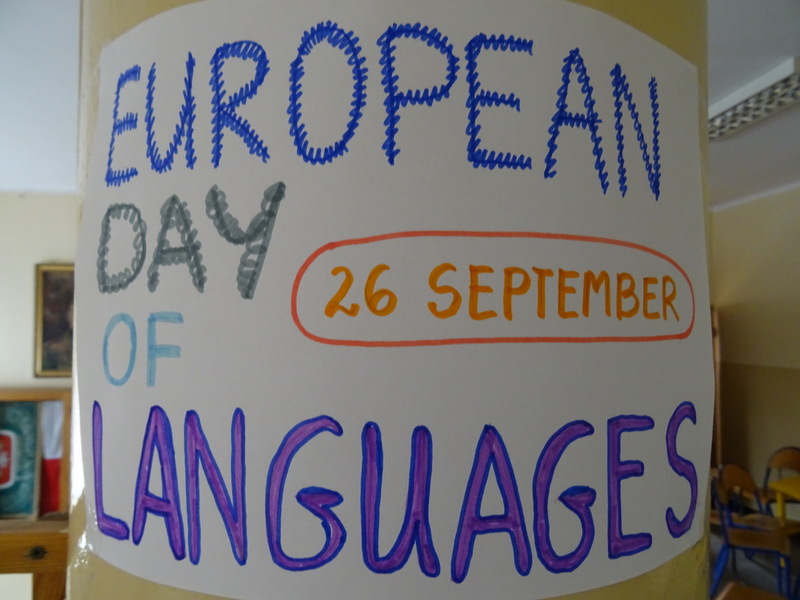 EUROPEAN
DAY
26 SEPTEMBER
OF
LANGUAGES